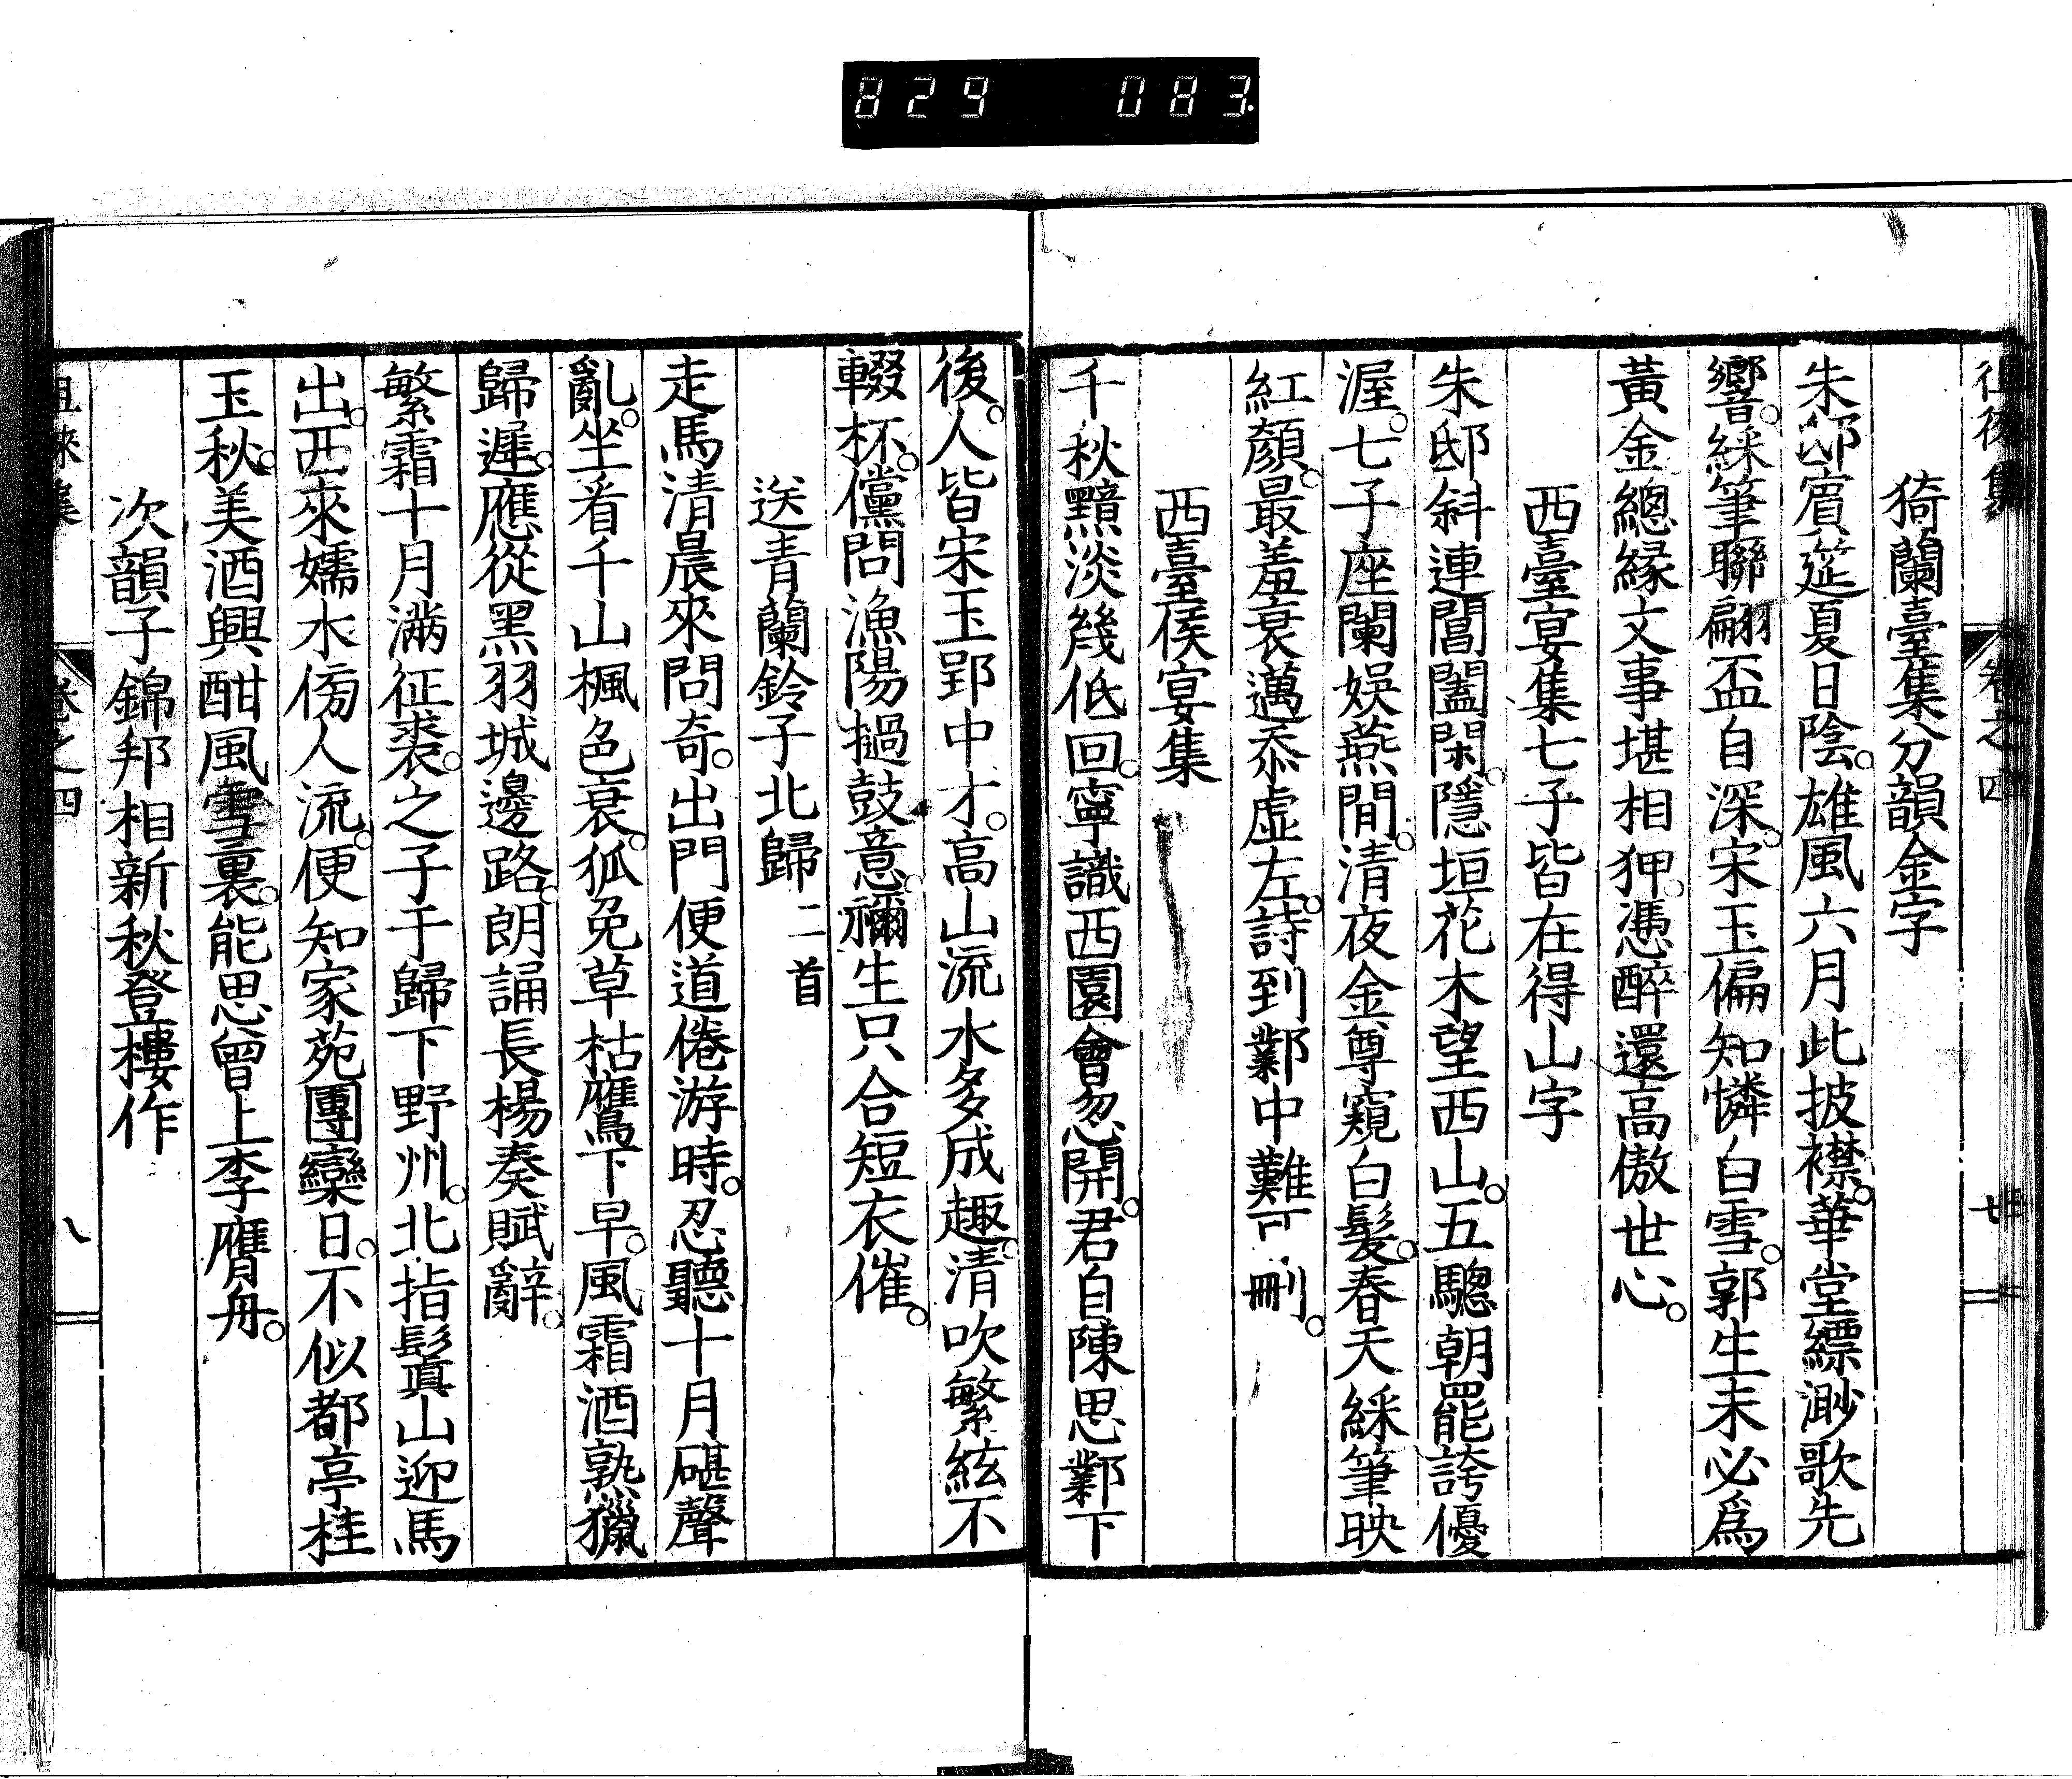 829 083
徂徠集 卷之四 七
猗蘭臺集分韻金字
朱邸賓筵夏日陰。雄風六月此披襟。華堂縹渺歌先
響。綵筆聯翩盃自深。宋玉偏知憐白雪。郭生未必爲
黃金總緣文事堪相狎。憑醉還高傲世心。
西臺宴集七子皆在得山字
朱邸斜連閶闔閑。隱垣花木望西山。五驄朝罷誇優
渥。七子座闌娛燕間。清夜金尊窺白髮。春天綵筆映
紅顏。最羞衰邁忝虛左。詩到鄴中難可刪。
西臺侯宴集
千秋黯淡幾低回。寧識西園會忽開。君自陳思鄴下
後。人皆宋玉郢中才。高山流水多成趣。清吹繁絃不
輟杯。儻問漁陽撾鼓意。禰生只合短衣催。
送青蘭鈴子北歸二首
走馬清晨來問奇。出門便道倦游時。忍聽十月碪聲
亂。坐看千山楓色衰。狐兔草枯鷹下早。風霜酒熟獵
歸遲。應從黑羽城邊路。朗誦長楊奏賦辭。
繁霜十月滿征裘。之子于歸下野州。北指鬒山迎馬
出。西來嬬水傍人流。便知家苑團欒日。不似都亭桂
玉秋。美酒興酣風雪裏。能思曾上李膺舟。
次韻子錦邦相新秋登樓作
徂徠集 卷之四 八